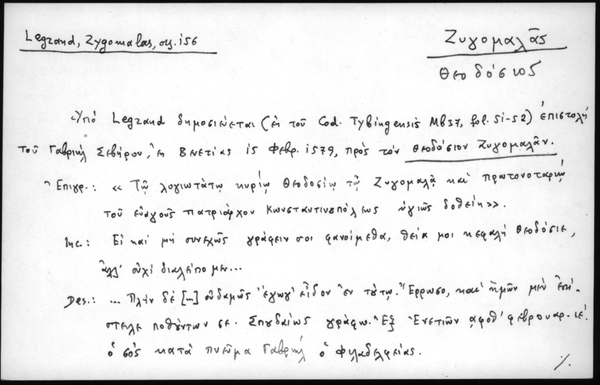 Legrand, Zygomalas, σσ. 156
Ζυγομαλᾶς
Θεοδόσιος
Ὑπὸ Legrand δημοσιεύεται (ἐκ τοῦ Cod. Tybingensis Mb37, fol. 51-52) ἐπιστολὴ
τοῦ Γαβριὴλ Σεβήρου, ἐκ Βενετίας 15 Φεβρ. 1579, πρὸς τὸν Θεοδόσιον Ζυγομαλᾶν.
Ἐπιγρ.: « Τῷ λογιωτάτῳ κυρίῳ Θεοδοσίῳ τῷ Ζυγομαλᾷ καὶ πρωτονοταρίῳ
τοῦ εὐαγοῦς πατριάρχου Κωνσταντινουπόλεως ὑγιῶς δοθείη».
Inc.: Εἰ καὶ μὴ συνεχῶς γράφειν σοι φαινοίμεθα, θεία μοι κεφαλὴ Θεοδόσιε,
ἀλλ' οὐχὶ διαλείπομεν...
Des.: ... Πλὴν δὲ [...] οὐδαμῶς ἔγωγ' εἶδον ἐν τούτῳ. Ἔρρωσο, καὶ ἡμῶν μὲν ἐπί-
στελλε ποθούντων σε. Σπουδαίως γράφω. Ἐξ Ἐνετιῶν αφοθ' φεβρουαρ. ιε'.
ὁ σὸς κατὰ πνεῦμα Γαβριὴλ ὁ Φιλαδελφείας.
./.